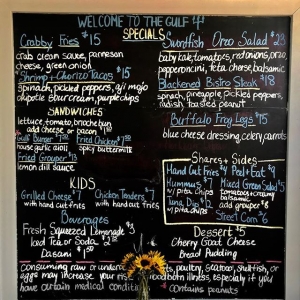 WELCOME TO THE GULF
SPECIALS
Crabby Fries $15
crab clean sauce, parmesan
cheese, green onion
Shrimp + Chorizo Tacos $15
spinach, pickled peppers, g/j mojo
chipotle sour cream, purple chips
SANDWICHES
lettuce, tomato, brioche bun
add cheese or bacon
Bulls Burger $17
house garlic aioli
Fried Chicken
spicy buttermilk
Fried Grouper $13
lemon dill sauce
KIDS
Grilled Cheese
with hand cut fries
Chicken Tenders
with hand cut fries
Beverages
Fresh Squeezed Lemonade
Iced Tea or Soda $2
Dasani
Swordfish Orzo Salad $23
baby kale, tomatoes, red onions, orzo,
pepperoncini, feta cheese, balsamic
Blackened Bistro Steak $18
spinach, pineapple pickled peppers,
radish, toasted peanut
Buffalo Frog Legs $15
blue cheese dressing, celery, carrots
Shares + Sides
Hand Cut Fries
Peel + Eat $9
Hummus
w/ pita chips
Mixed Green Salad $5
tomatoes, creamy
balsamic
add grouper
Tuna Dip
w/ pita chips
Street Corn
Dessert $5
Cherry Goat Cheese
Bread Pudding
consuming raw or under
poultry, seafood, shellfish, or
eggs may increase your
illness, especially if you
have certain medical
contains peanuts